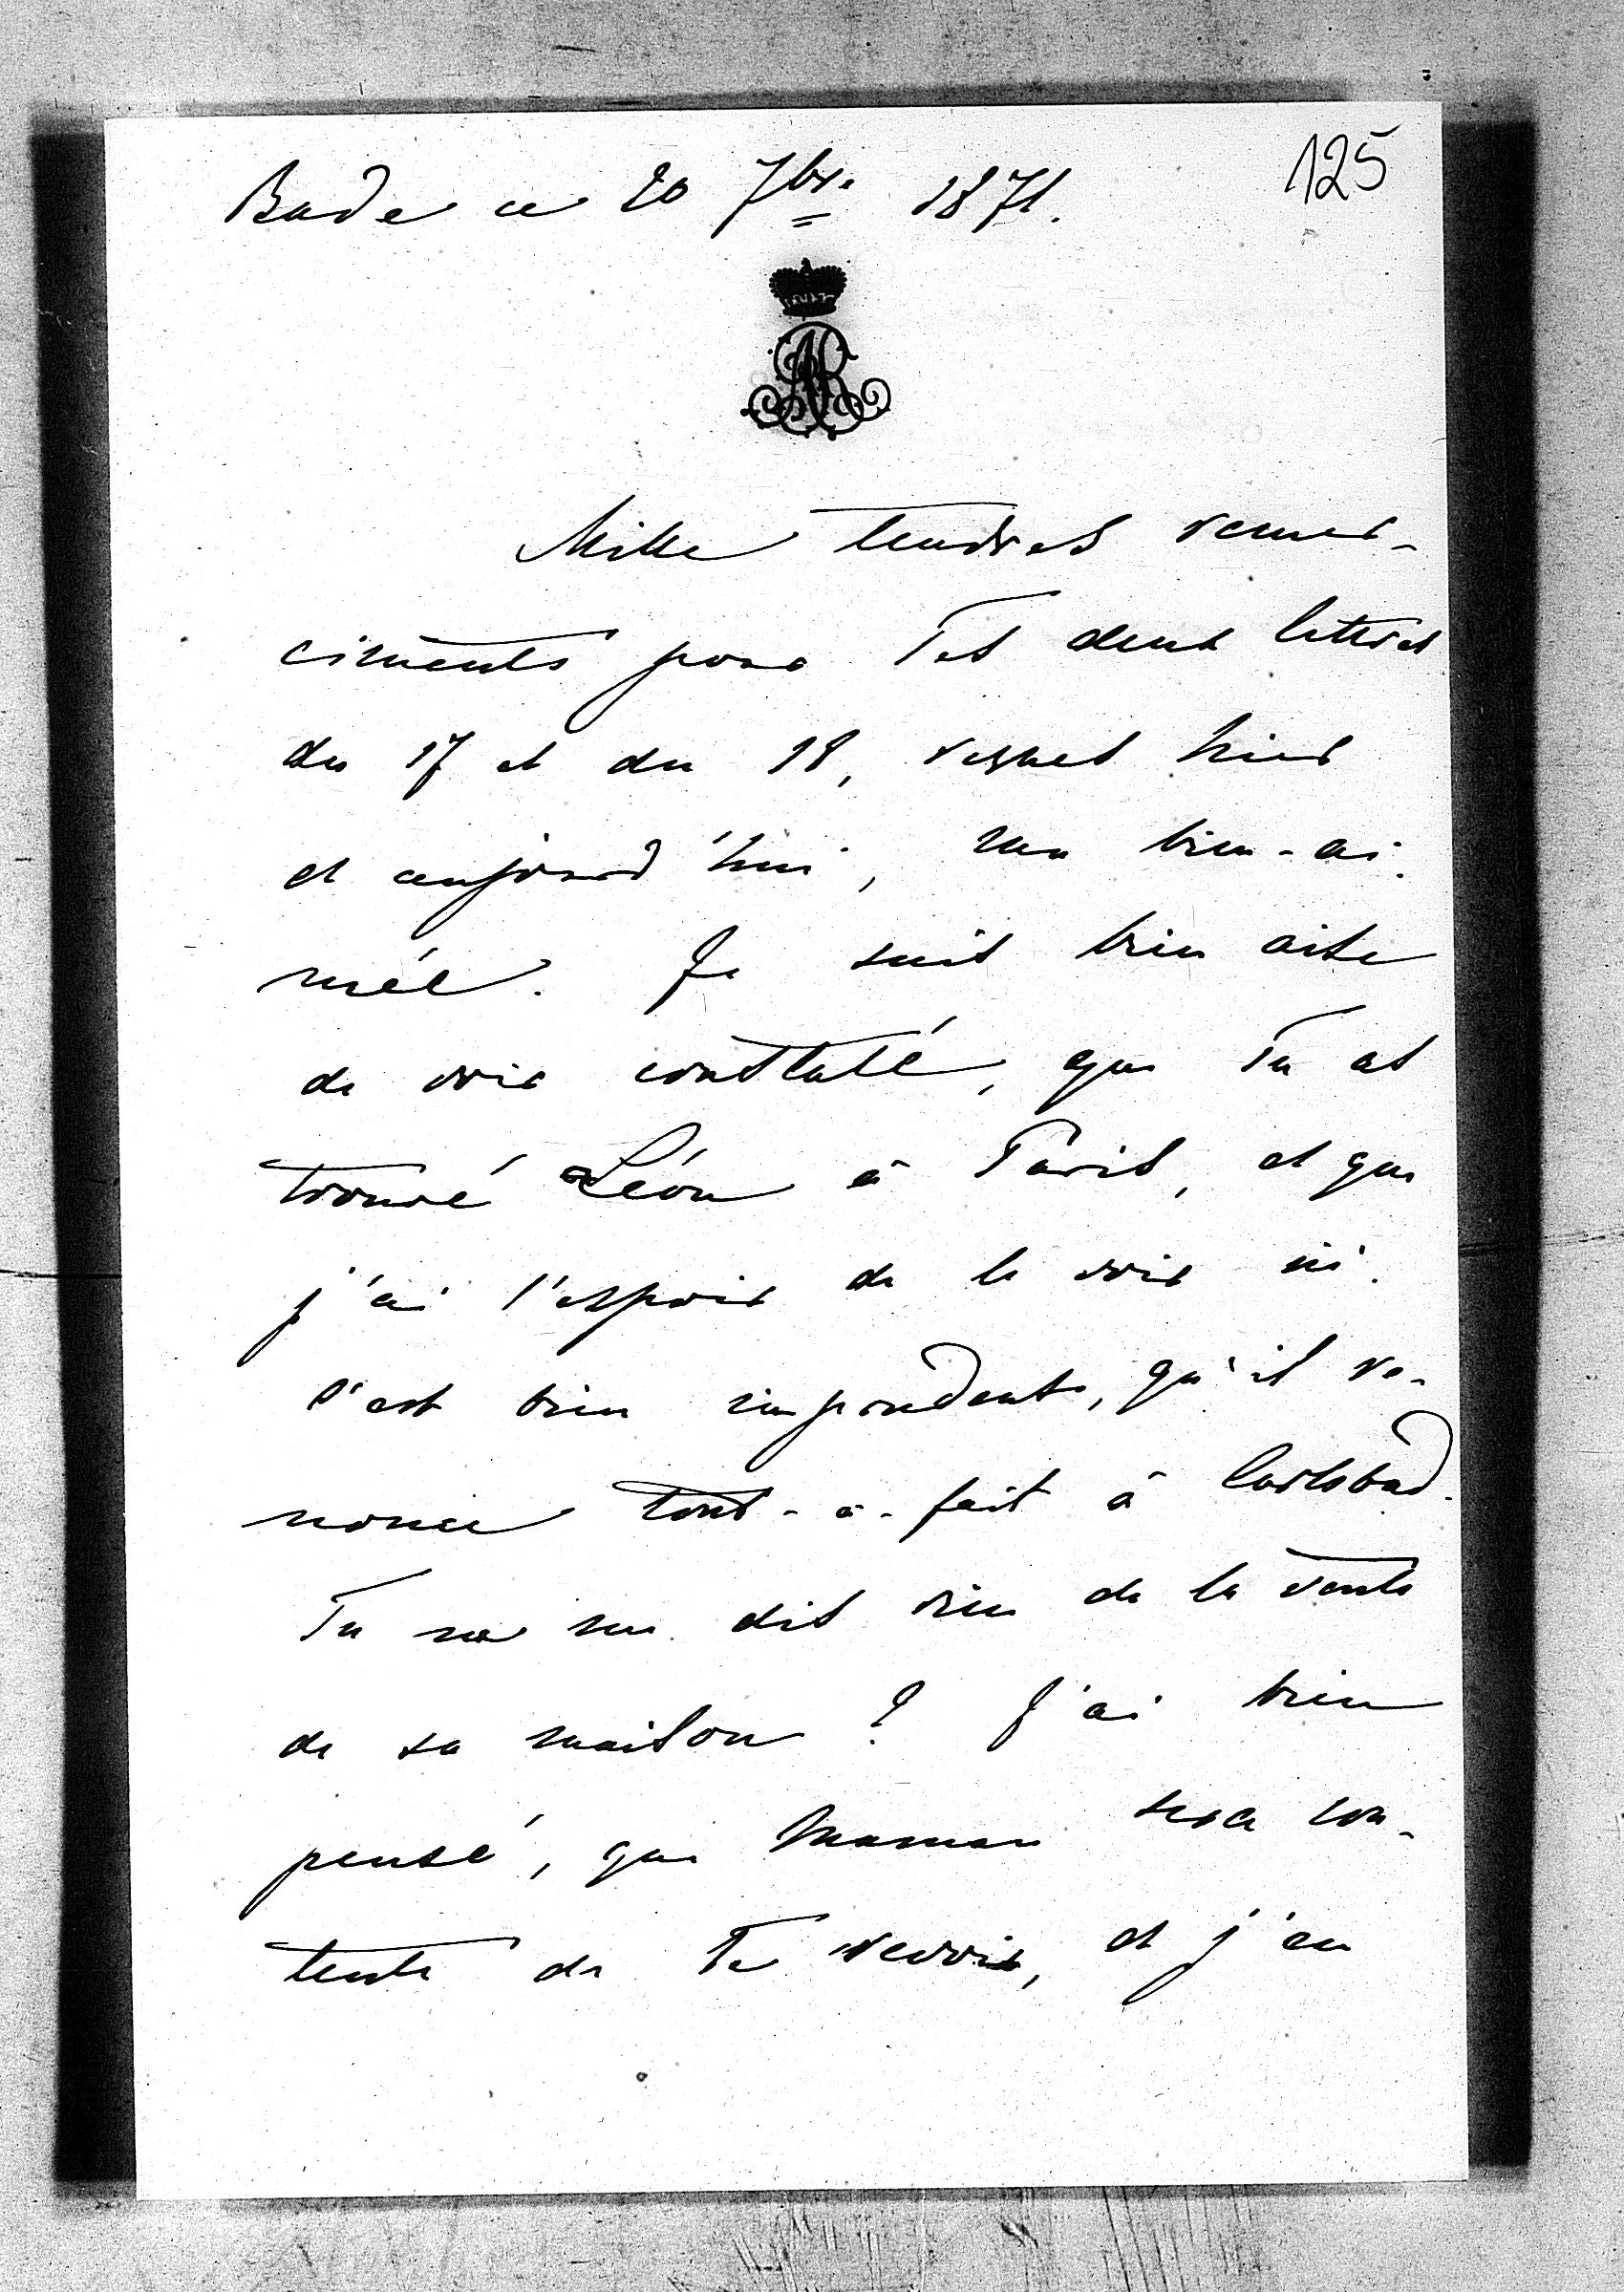 125
Bade ce 20 7br. 1871.
AR
Mille tendres remer-
ciments pour Tes deux lettres
du 17 et du 18, reçues hier
et aujourd'hui, mon bien-ai-
mée. Je suis bien aise
de voir constaté, que Tu as
trouvé Léon à Paris, et que
j'ai l'espoir de le voir ici.
C'est bien imprudent, qu'il re-
nonce tout-à-fait à Carlsbad.
Tu ne me dis rien de la vente
de sa maison? J'ai bien
pensé, que Maman sera con-
tente de Te revoir, et j'en